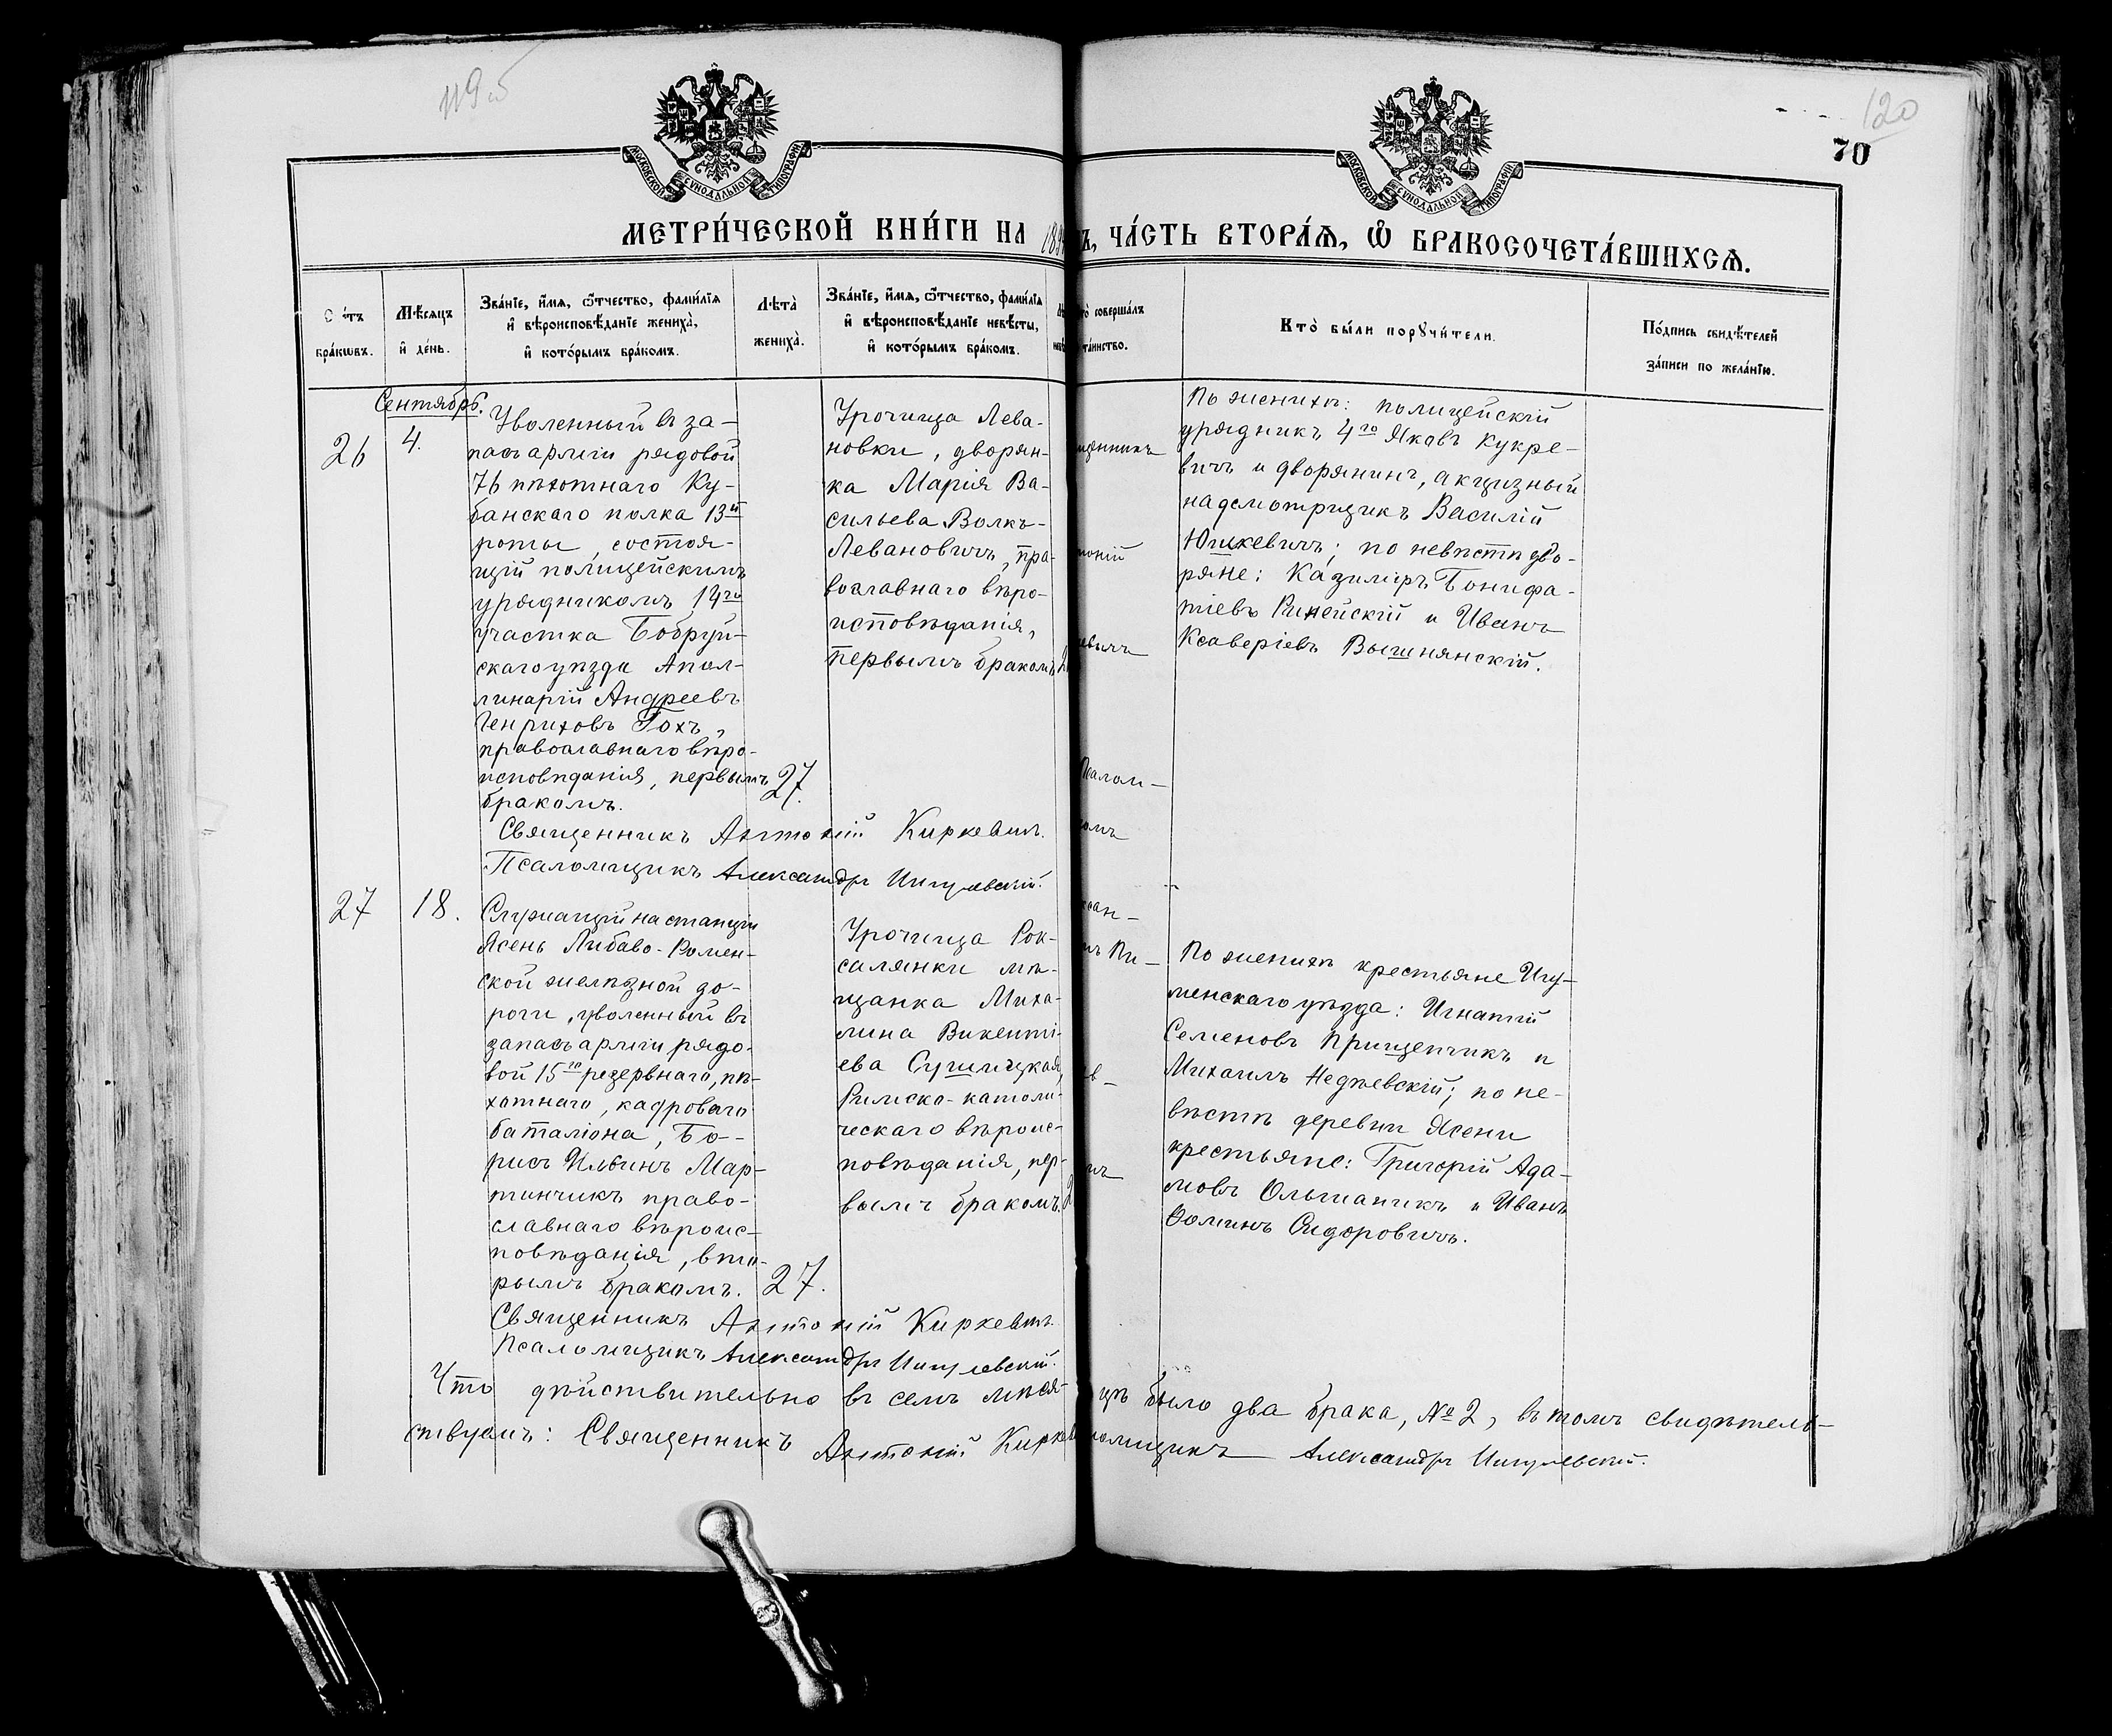 119 об
120
70
МОСКОВСКОЙ СѴНОДАЛЬНОЙ ТИПОГРАФІИ
МОСКОВСКОЙ СѴНОДАЛЬНОЙ ТИПОГРАФІИ
МЕТРИ́ЧЕСКОЙ КНИ́ГИ НА 189
Ъ, ЧА́СТЬ ВТОРА́Ѧ, Ѽ БРАКОСОЧЕТА́ВШИХСѦ.
бра́кѡвъ.
Мѣ́сяцъ
и҆ де́нь.
Зва́нїе, и҆́мѧ, ѻ҆́тчество, фами́лїѧ
и҆ вѣроисповѣ́данїе жениха̀,
и҆ кото́рымъ бра́комъ.
Лѣ́та
жениха̀.
Зва́нїе, и҆́мѧ, ѻ҆́тчество, фами́лїѧ
и҆ вѣроисповѣ́данїе невѣ́сты,
и҆ кото́рымъ бра́комъ.
то̀ соверша́лъ
та́инство.
Кто̀ бы́ли порꙋчи́тели.
По́дпись свидѣ́телей
за́писи по жела́нїю.
Сентябрь.
26
4.
Уволенный въ за-
пасъ арміи рядовой
76 пѣхотнаго Ку-
банскаго полка 13й
роты, состоя-
щій полицейскимъ
урядникомъ 14го
участка Бобруй-
скаго уѣзда Апол-
линарій Андреевъ
Генриховъ Гохъ,
православнаго вѣро-
исповѣданія, первымъ
бракомъ.
27.
Урочища Лева-
новки, дворян-
ка Марія Ва-
сильева Волкъ-
Левановичъ, пра-
вославнаго вѣро-
исповѣданія,
первымъ бракомъ
2
щенникъ
тоній
евичъ
Псалом-
комъ
ксан-
По женихѣ: полицейскій
урядникъ 4го Яковъ Кукре-
вичъ и дворянинъ, акцизный
надсмотрщикъ Василій
Юшкевичъ; по невѣстѣ дво-
ряне: Казиміръ Бонифа-
тіевъ Ринейскій и Иванъ
Ксаверіевъ Вышнянскій.
Священникъ Антоній Киркевичъ.
Псаломщикъ Александръ
27
18.
Служащій на станціи
Ясень Либаво-Ромен-
ской желѣзной до-
роги, уволенный въ
запасъ арміи рядо-
вой 15го резервнаго, пѣ-
хотнаго, кадроваго
баталіона, Бо-
рисъ Ильинъ Мар-
тинчикъ право-
славнаго вѣроис-
повѣданія, вто-
рымъ бракомъ.
27.
Урочища Рок-
салянки мѣ-
щанка Миха-
лина Викенті-
ева Сушицкая,
Римско-католи-
ческаго вѣроис-
повѣданія, пер-
вымъ бракомъ.
2
По женихѣ крестьяне Игу-
менскаго уѣзда: Игнатій
Семеновъ Прищепчикъ и
Михаилъ Недѣевскій; по не-
вѣстѣ деревни Ясени
крестьяне: Григорій Ада-
мовъ Ольшаникъ и Иванъ
Ѳоминъ Сидоровичъ.
Священникъ Антоній Киркевичъ.
Псаломщикъ Александръ
Что дѣйствительно въ семъ мѣся-
цѣ было два брака, № 2, въ томъ свидѣтель-
ствуемъ: Священникъ Антоній Киркев
ломщикъ Александръ